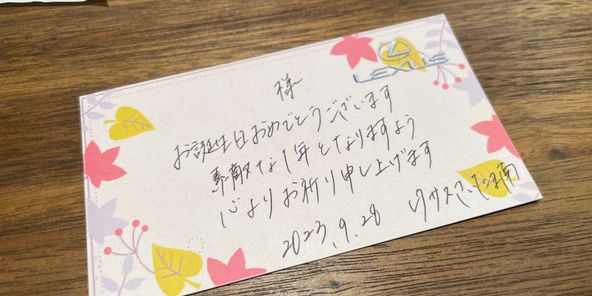 LEXUS
様
お誕生日おめでとうございます
素敵な1年となりますよう
心よりお祈り申し上げます
2023.9.28
レクサス